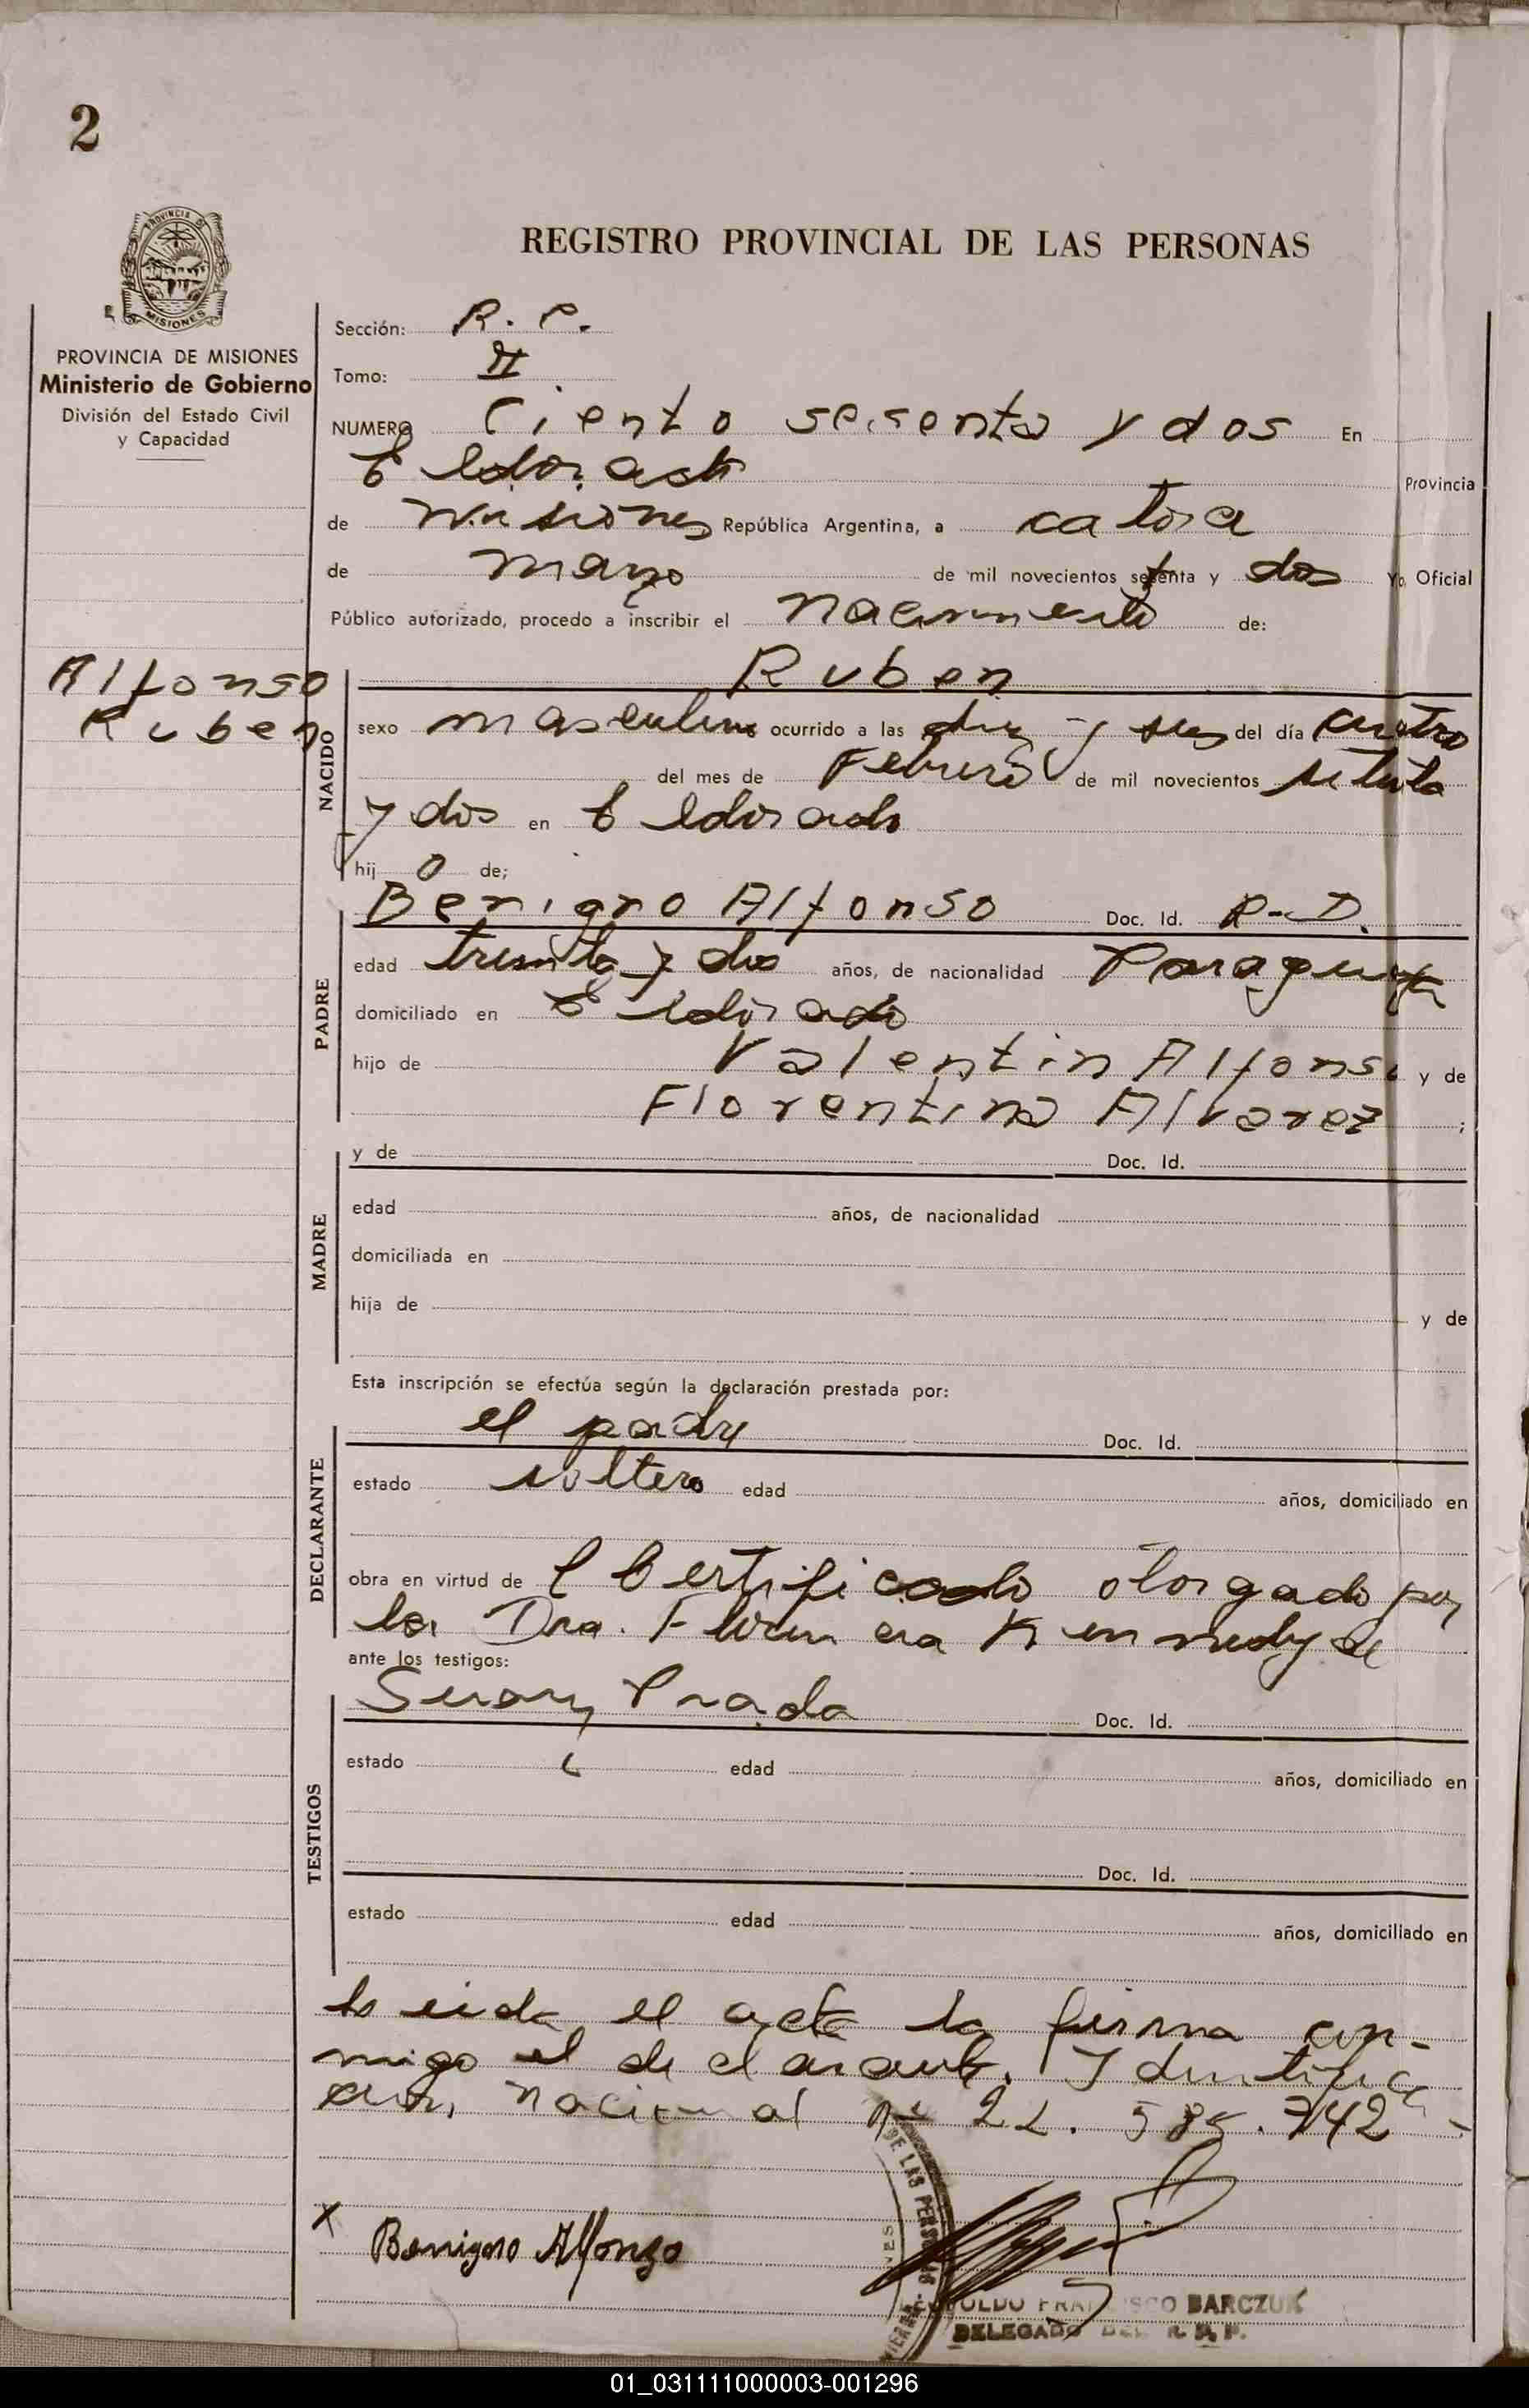 2
PROVINCIA DE MISIONES
PROVINCIA DE MISIONES
Ministerio de Gobierno
División del Estado Civil
y Capacidad
REGISTRO PROVINCIAL DE LAS PERSONAS
Sección: R. P.
Tomo: II
NUMERO Ciento sesenta y dos En
Eldorado Provincia
de Misiones República Argentina, a catorce
de marzo de mil novecientos setenta y dos Yo, Oficial
Público autorizado, procedo a inscribir el nacimiento de:
Alfonso
Ruben
NACIDO
Ruben
sexo masculino ocurrido a las diez y seis del día cuatro
del mes de Febrero de mil novecientos setenta
y dos en Eldorado
hijo de;
PADRE
Benigno Alfonso Doc. Id. R-D.
edad treinta y dos años, de nacionalidad Paraguaya
domiciliado en Eldorado
hijo de Valentin Alfonso y de
Florentina Alvarez ;
MADRE
y de Doc. Id.
edad años, de nacionalidad
domiciliada en
hija de y de
Esta inscripción se efectúa según la declaración prestada por:
DECLARANTE
el padre Doc. Id.
estado soltero edad años, domiciliado en
obra en virtud de Certificado otorgado por
la Dra. Kennedy de
ante los testigos:
TESTIGOS
Prada Doc. Id.
estado edad años, domiciliado en
Doc. Id.
estado edad años, domiciliado en
Leida el acta la firma con-
migo el declarante. Identifica
cion nacional nº 742
x Benigno Alfonzo
DE LAS PERSO
FRANCISCO BARCZUK
DELEGADO DEL R. P. P.
01_031111000003-001296